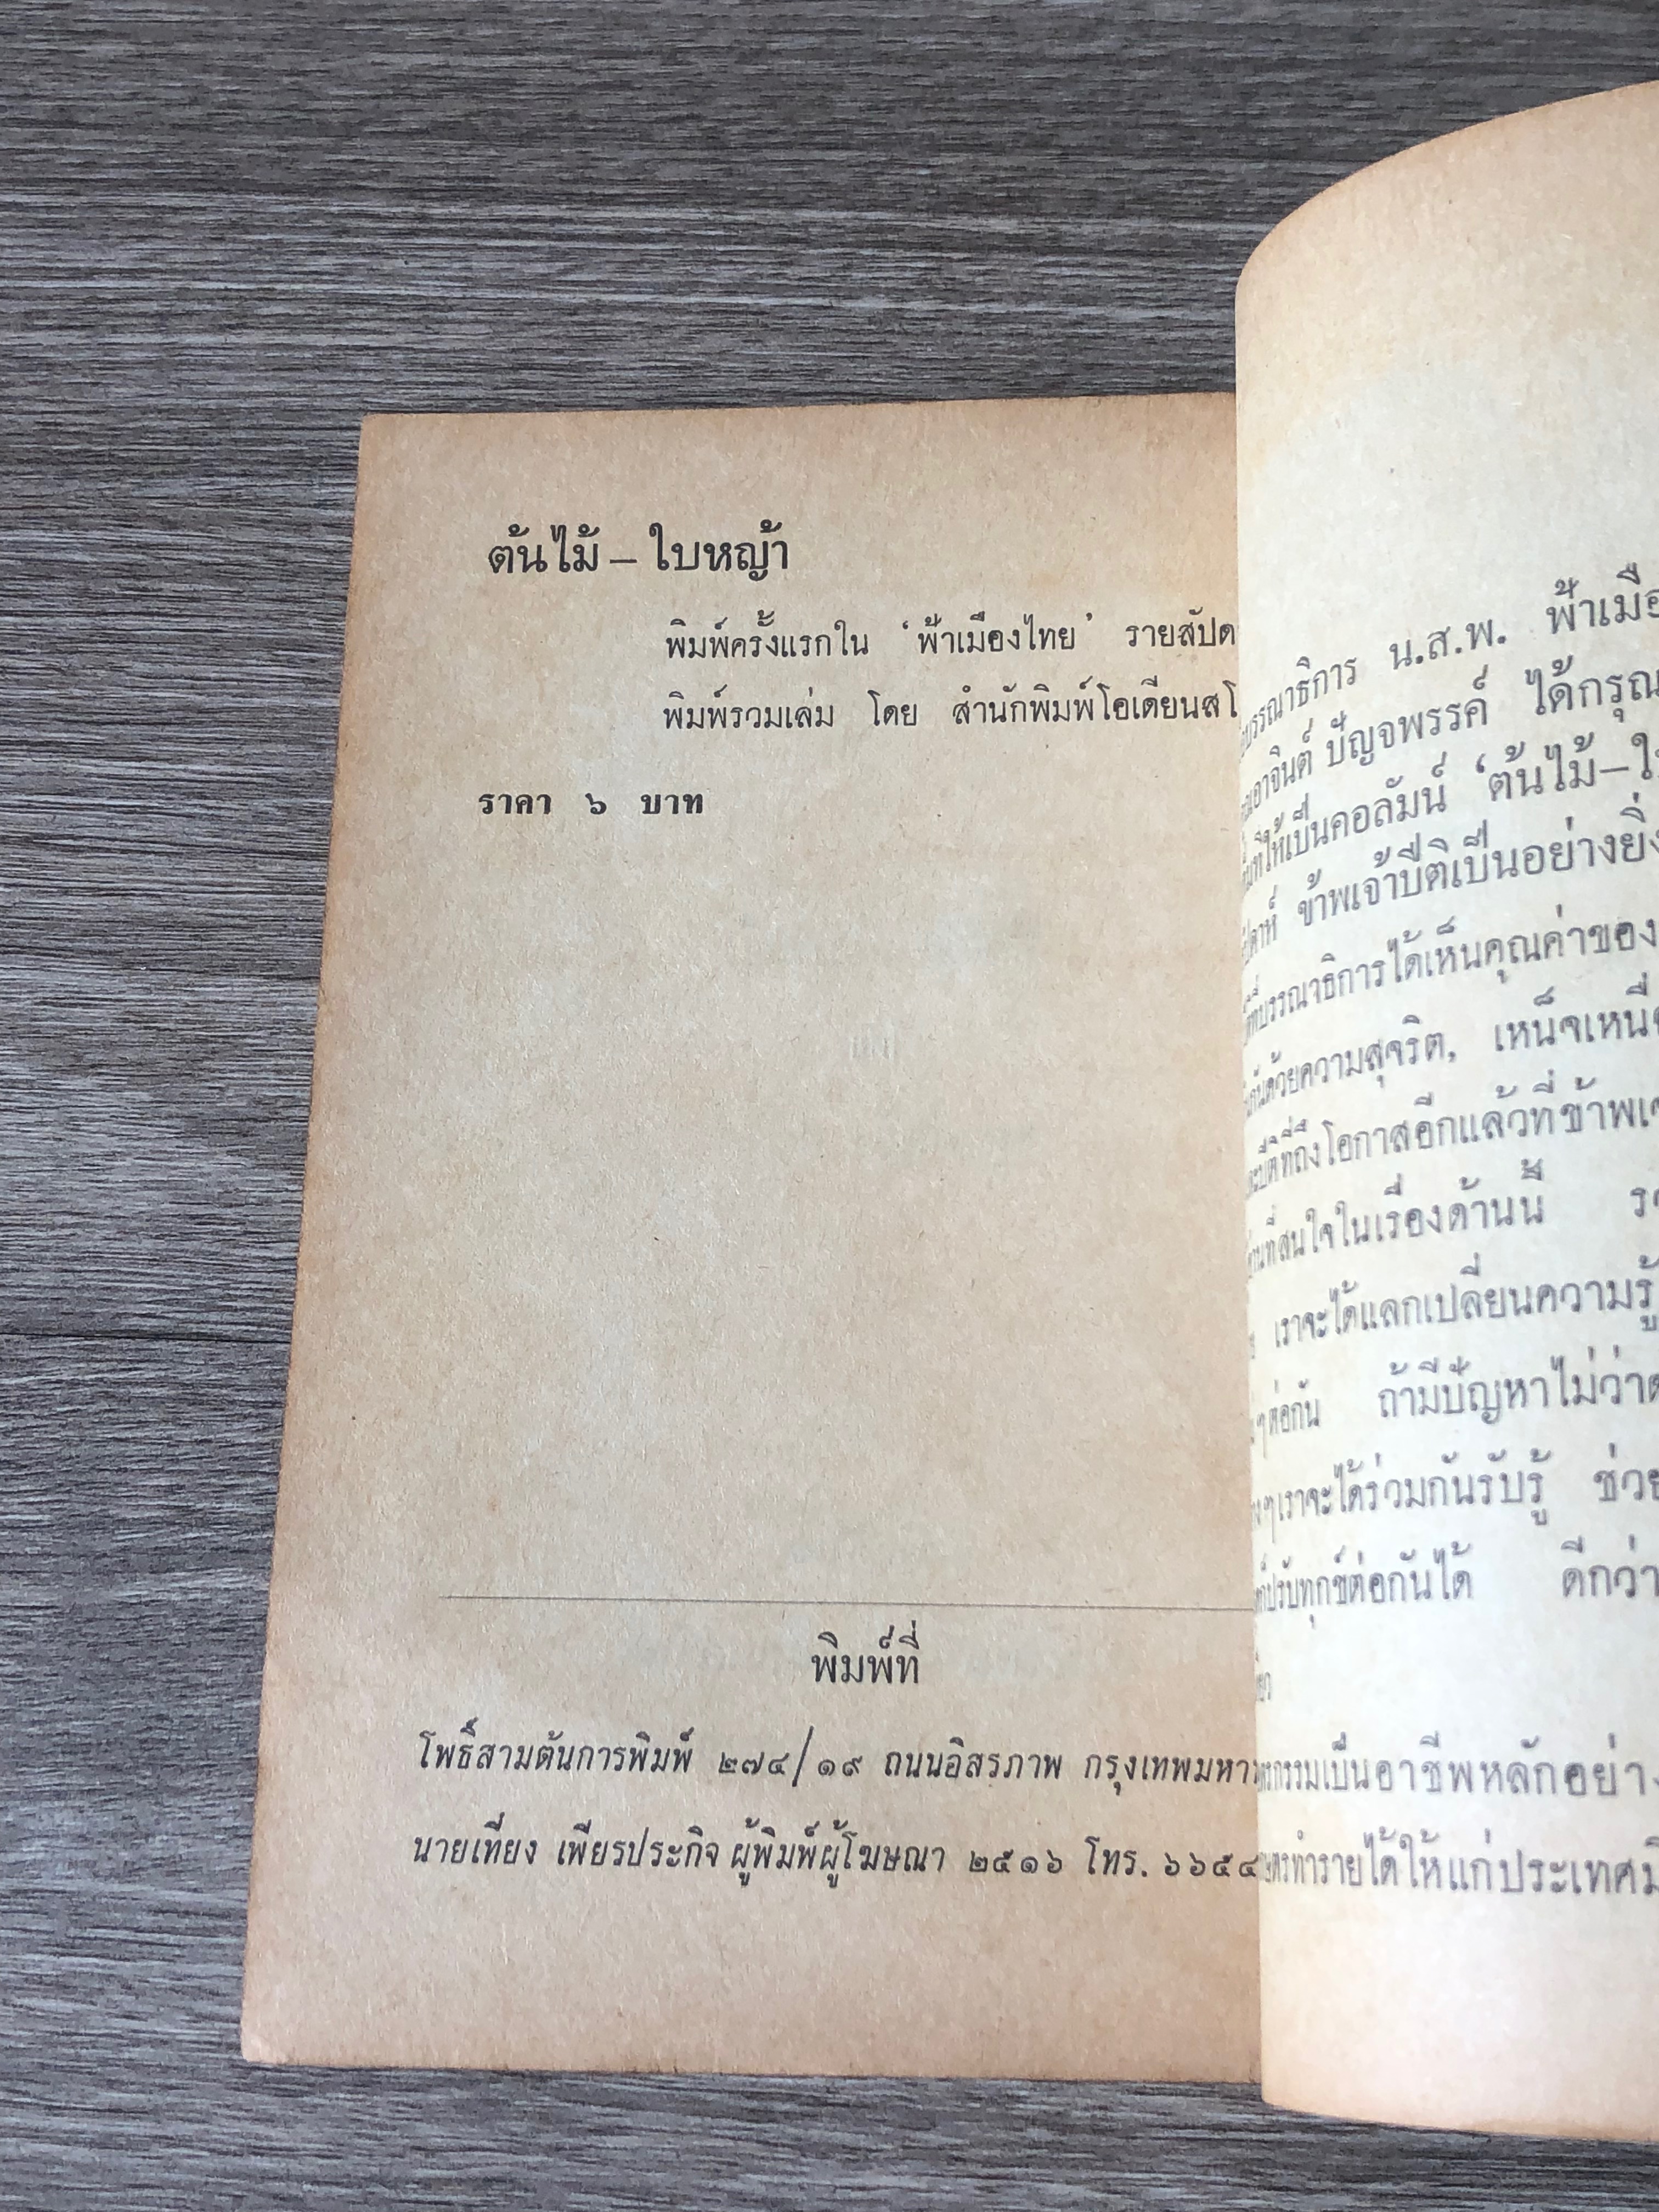 ต้นไม้ – ใบหญ้า
พิมพ์ครั้งแรกใน ‘ฟ้าเมืองไทย’ รายสัปด
พิมพ์รวมเล่ม โดย สำนักพิมพ์โอเดียนสโ
ราคา ๖ บาท
พิมพ์ที่
โพธิ์สามต้นการพิมพ์ ๒๗๔/๑๙ ถนนอิสรภาพ กรุงเทพมหา
นายเที่ยง เพียรประกิจ ผู้พิมพ์ผู้โฆษณา ๒๕๑๖ โทร. ๖๖๕๔
บรรณาธิการ น.ส.พ. ฟ้าเมือ
อาจินต์ ปัญจพรรค์ ได้กรุณ
ให้เป็นคอลัมน์ ‘ต้นไม้–ใ
ข้าพเจ้าปีติเป็นอย่างยิ่ง
ที่บรรณาธิการได้เห็นคุณค่าของ
ด้วยความสุจริต, เหน็จเหนื
ที่ถึงโอกาสอีกแล้วที่ข้าพเ
ที่สนใจในเรื่องด้านนี้
เราจะได้แลกเปลี่ยนความรู้
ๆต่อกัน ถ้ามีปัญหาไม่ว่า
ๆเราจะได้ร่วมกันรับรู้ ช่วย
ปรับทุกข์ต่อกันได้ ดีกว่า
กรรมเป็นอาชีพหลักอย่าง
ทำรายได้ให้แก่ประเทศ